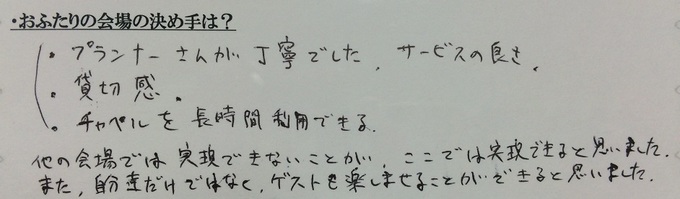 ・おふたりの会場の決め手は？
・プランナーさんが丁寧でした、サービスの良さ、
・貸切感
・チャペルを長時間利用できる。
他の会場では実現できないことが、ここでは実現できると思いました。
また、自分達だけではなく、ゲストも楽しませることができると思いました。